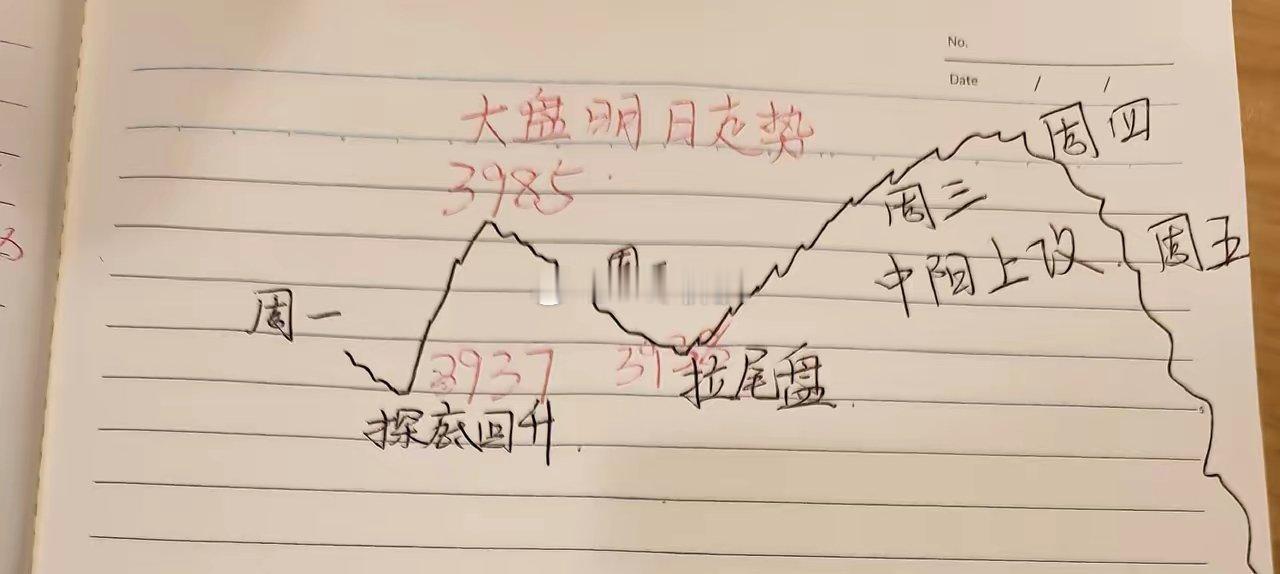 No.
Date / /
大盘明日走势
3985
周四
周三
中阳上议
周五
周一
周
3937
拉尾盘
探底回升